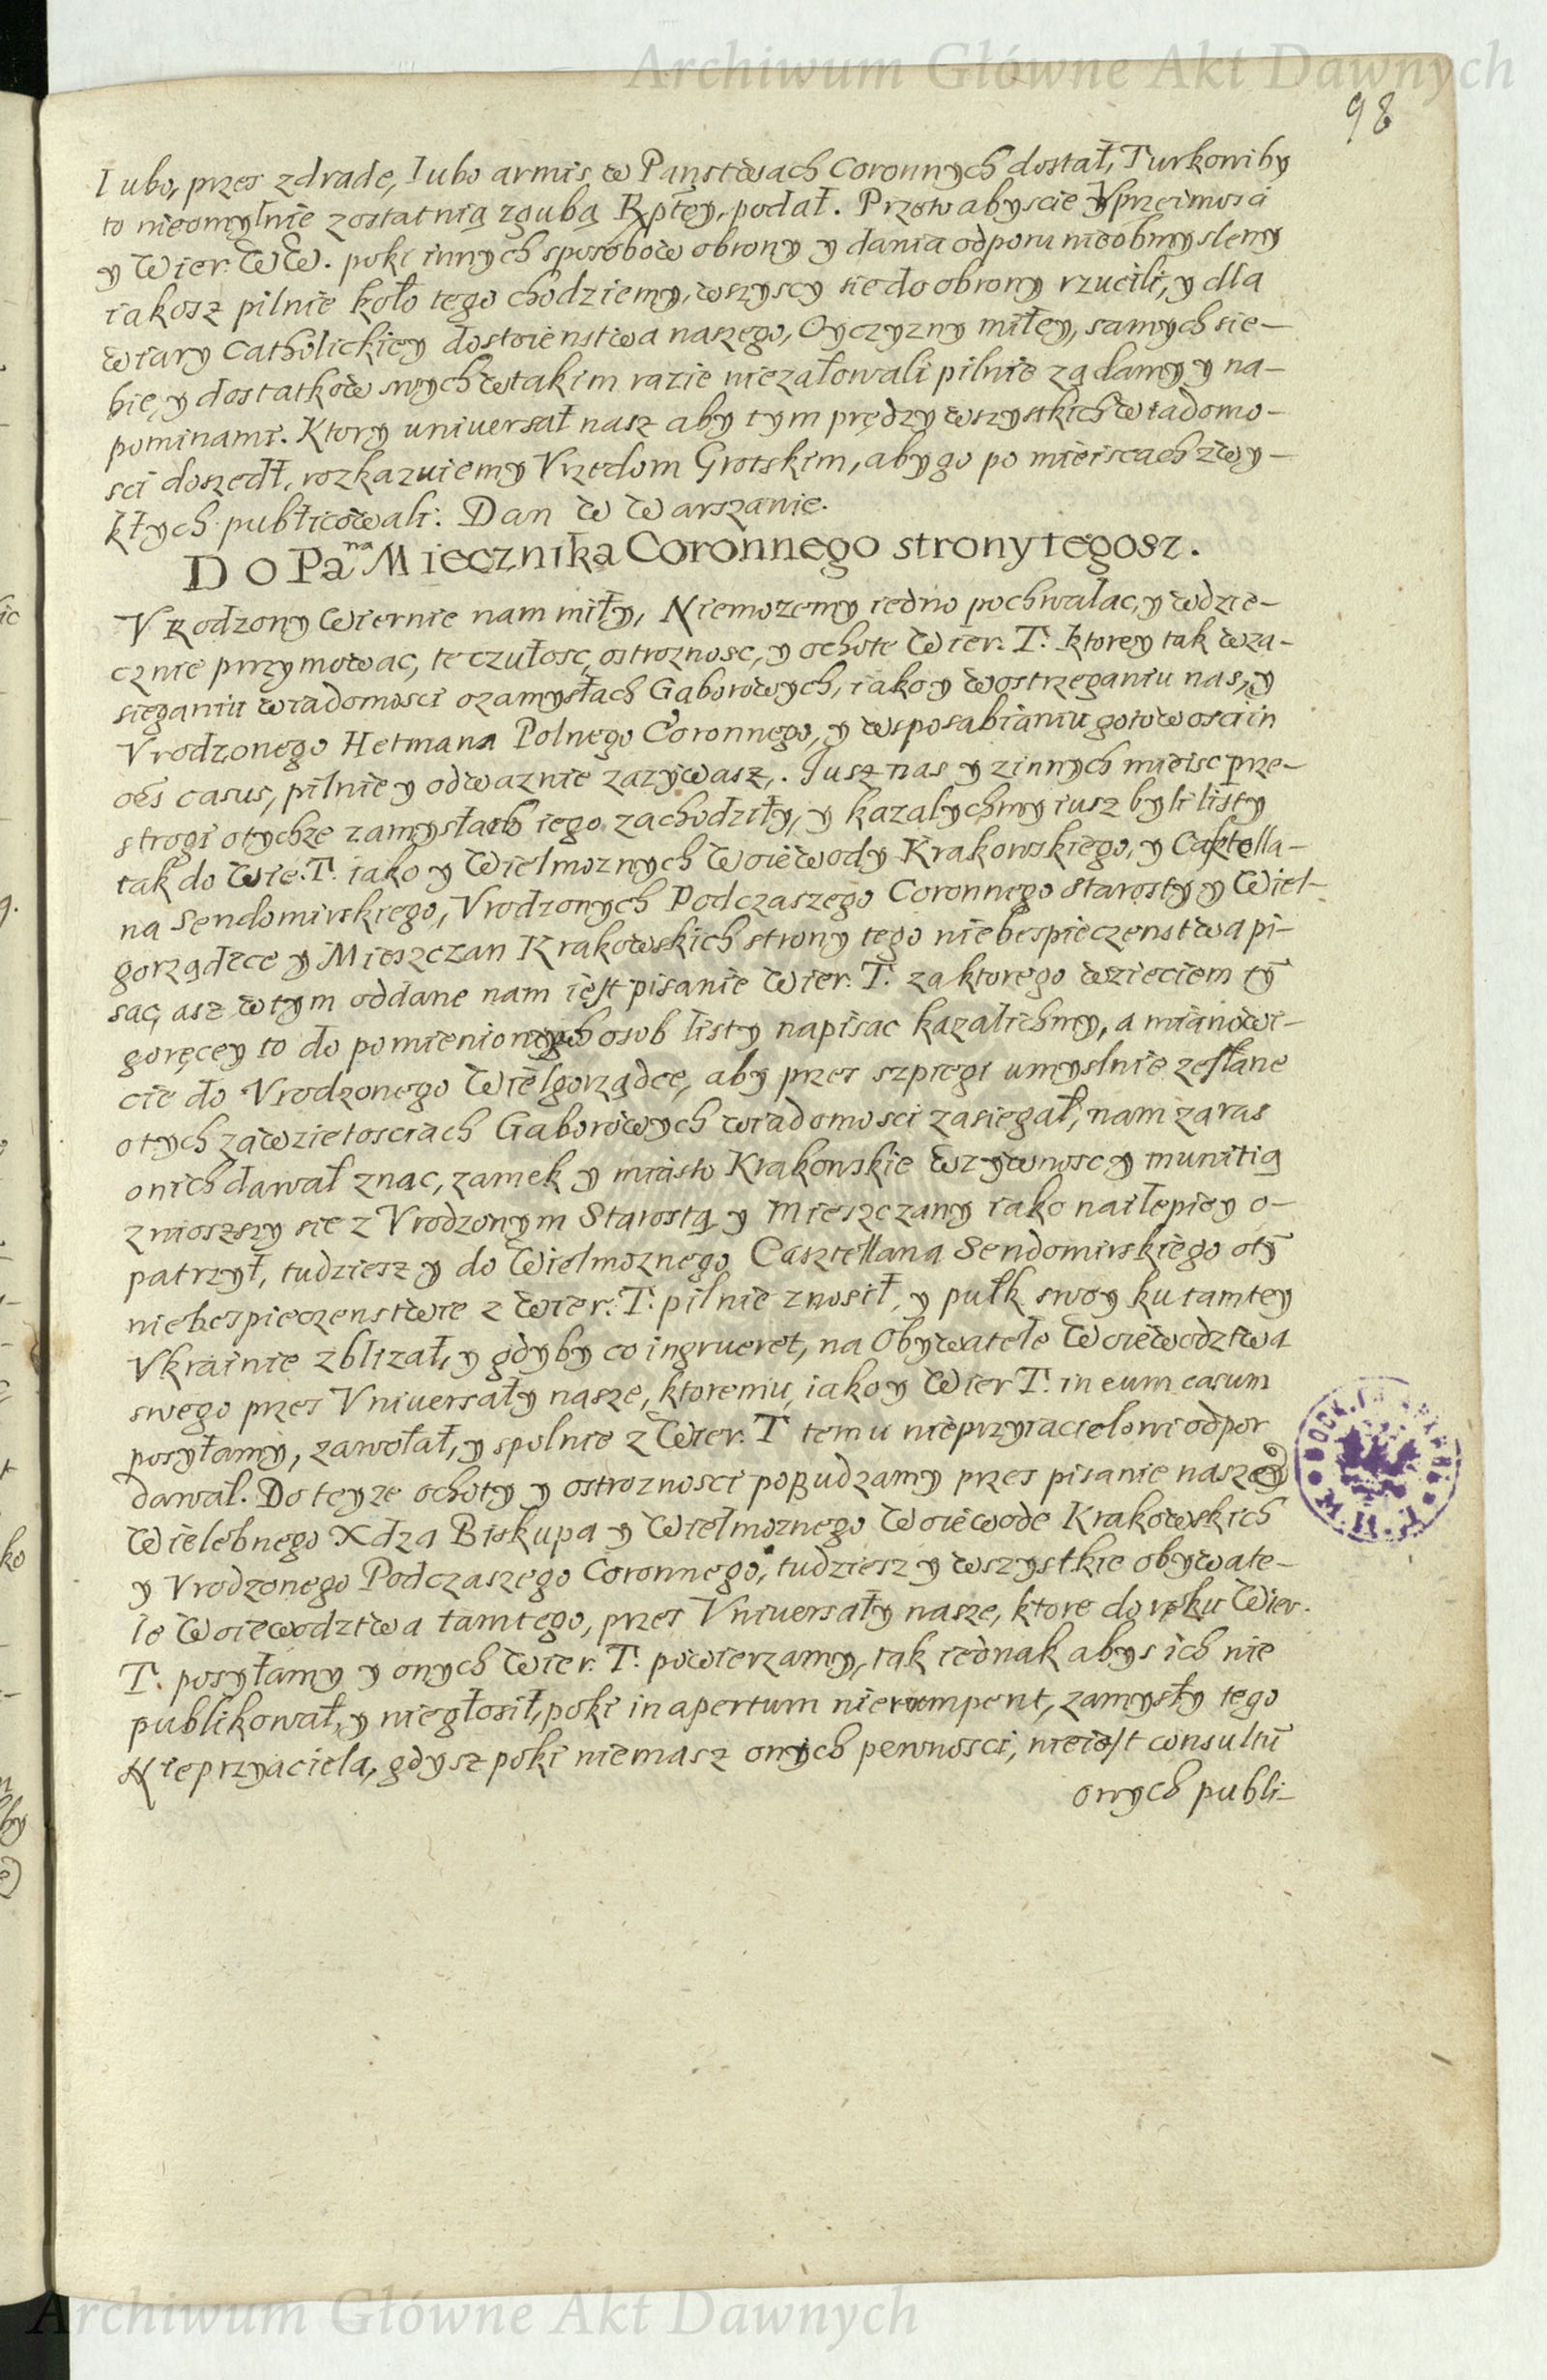 Archiwum Główne Akt Dawnych
98
lubo, przes zdrade, lubo armis w Panstwach Coronnych dostał, Turkowi by
to nieomylnie zostatnią zgubą Rptey, podał. Przeto abyscie Vprzeimosci
y Wier. WW. poki innych sposobow obrony y dania odporu nieobmyslemy
iakosz pilnie koło tego chodziemy, wszyscy sie do obrony rzucili, y dla
wiary Catholickiey dostoienstwa naszego, Oyczyzny miłey, samych sie-
bie, y dostatkow swych w takim razie niezałowali pilnie ządamy y na-
pominami. Ktory uniuersał nasz aby tym prędzy wszystkich wiadomo-
sci doszedł, rozkazuiemy Vrzedom Grotskim, aby go po mieiscach zwy-
kłych publicowali. Dan w Warszawie.
DO Pana Miecznika Coronnego strony tegosz.
VRodzony Wiernie nam miły, Niemozemy iedno pochwalac, y wdzie-
cznie przymowac, te czułosc, ostroznosc, y ochote Wier. T. ktorey tak wza-
sieganiu wiadomosci o zamysłach Gaborowych, iako y wostrzeganiu nas, y
Vrodzonego Hetmana Polnego Coronnego, y wsposabianiu gotowosci in
oēs casus, pilnie y odwaznie zazywasz. Jusz nas y z innych mieisc prze-
strogi otychze zamysłach iego zachodziły, y kazalychmy iusz byli listy
tak do Wie. T. iako y Wielmoznych Woiewody Krakowskiego, y Castella-
na Sendomirskiego, Vrodzonych Podczaszego Coronnego Starosty y Wiel-
gorządzce y Mieszczan Krakowskich strony tego niebespieczenstwa pi-
sac, asz wtym oddane nam iest pisanie Wier. T. za ktorego wzieciem tȳ
goręcey to do pomienionych osob listy napisac kazalichmy, a mianowi-
cie do Vrodzonego Wielgorządce, aby przes szpiegi umyslnie zesłane
o tych zawzietosciach Gaborowych wiadomosci zasiegał, nam zaras
o nich dawał znac, zamek y miasto Krakowskie wzywnosc y munitią
zniosszy sie z Vrodzonym Starostą y Mieszczany iako nailepiey o-
patrzył, tudziesz y do Wielmoznego Casztellana Sendomirskiego otȳ
niebespieczenstwie z Wier. T. pilnie znosił, y pułk swoy ku tamtey
Vkrainie zblizał, y gdyby co ingrueret, na Obywatele Woiewodztwa
swego przes Vniuersały nasze, ktoremu, iako y Wier T. in eum casum
posyłamy, zawołał, y spolnie z Wier. T temu nieprzyiacielowi odpor
dawał. Do teyze ochoty y ostroznosci pobudzamy przes pisanie nasze
Wielebnego Xdza Biskupa y Wielmoznego Woiewode Krakowskich
y Vrodzonego Podczaszego Coronnego, tudziesz y wszystkie obywate-
le Woiewodztwa tamtego, przes Vniuersały nasze, ktore do ręku Wier.
T. posyłamy y onych Wier. T. powierzamy, tak iednak abys ich nie
publikował, y niegłosił, poki in apertum nierumpent, zamysły tego
Nieprzyaciela, gdysz poki niemasz onych pewnosci, nieiest consultū
onych publi-
Archiwum Główne Akt Dawnych